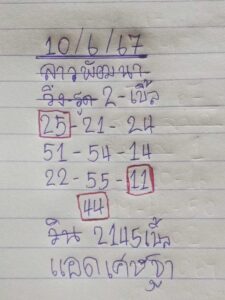 10/6/67
ลาวพัฒนา
วิ่ง-รูด 2-เบิ้ล
25-21-24
51-54-14
22-55-11
44
วิน 2145 เบิ้ล
แอดเศรษฐา